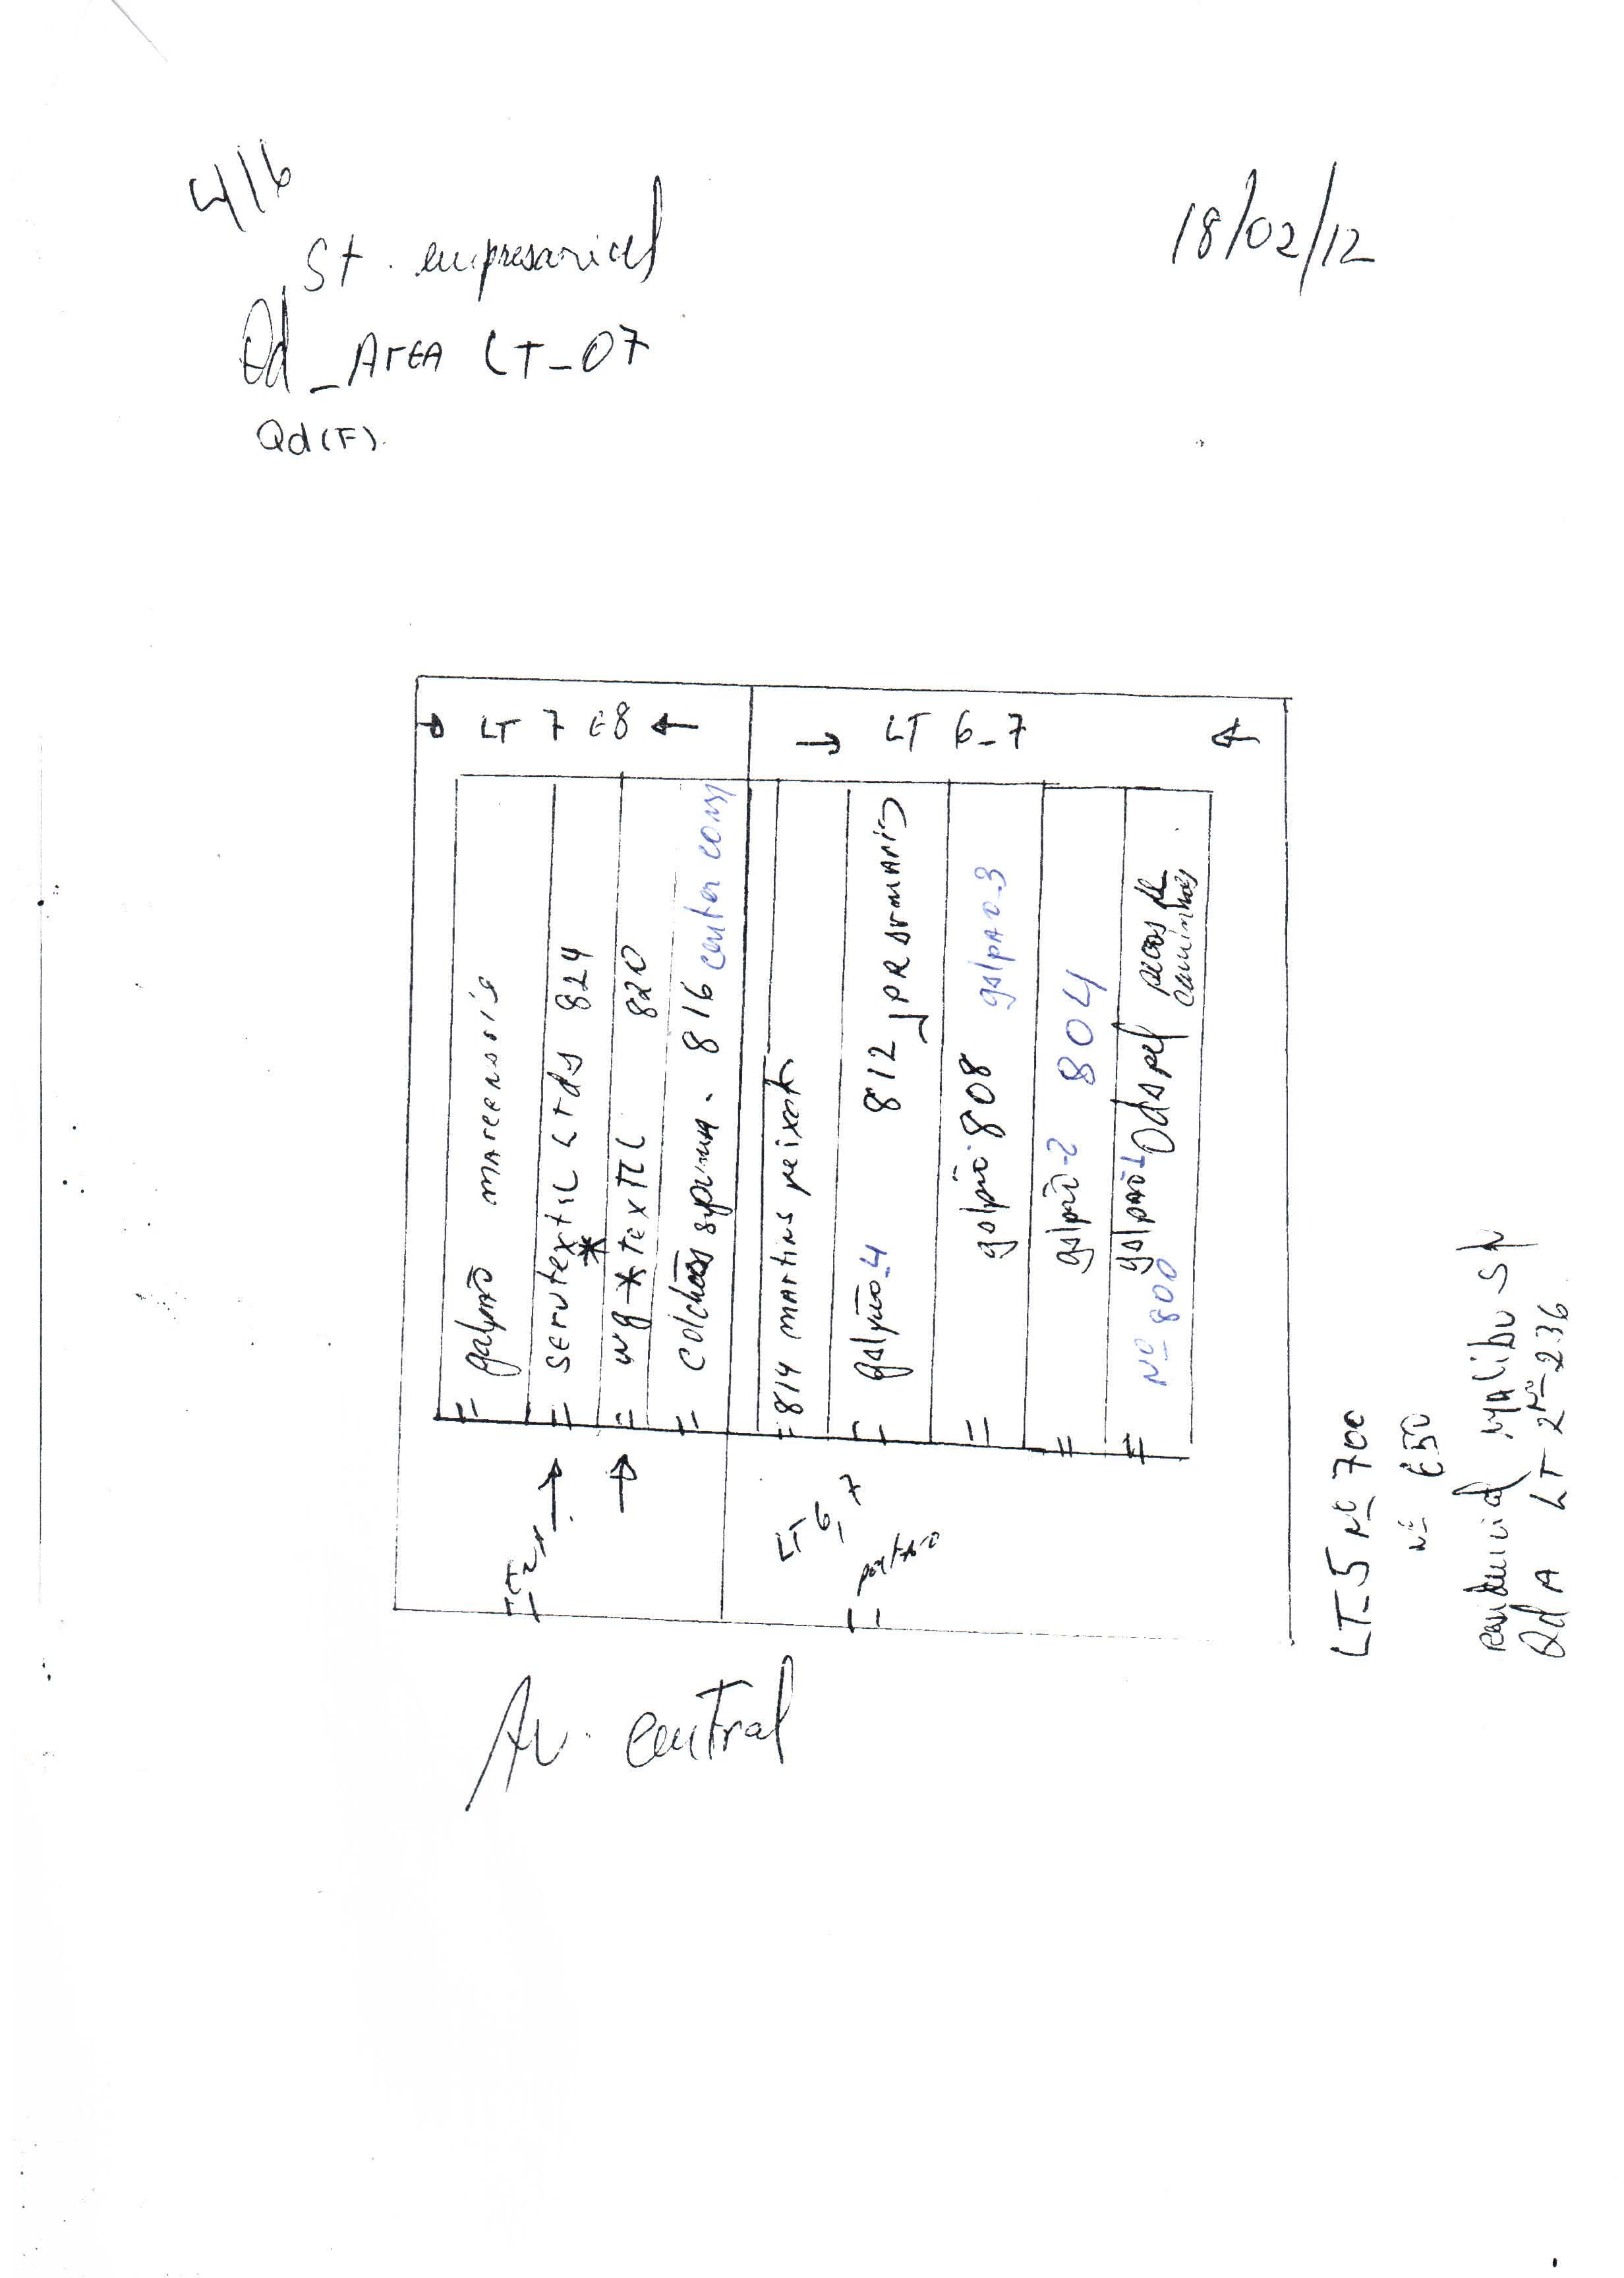 4/16
18/02/12
St. empresarial
Qd_ArEA LT_07
Qd(F).
LT 7 E8
LT 6_7
galpão marcenaria
servtextil Ltda 824
wg * textil 820
colchões 816 center
814 martins peixoto
galpão_4 812
galpão 808 galpao_3
galpão-2 804
galpão1 Odapel peças de caminhões
Nº 800
LT 6_7
portão
Av. central
LT_5 Nº 700
Nº 650
Residencial Malibu
Qd A LT 2 Nº 236